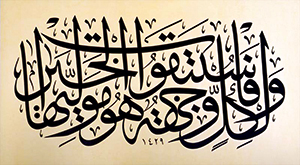 ولكل وجهة هو موليها فاستبقوا الخيرات
١٤٢٩